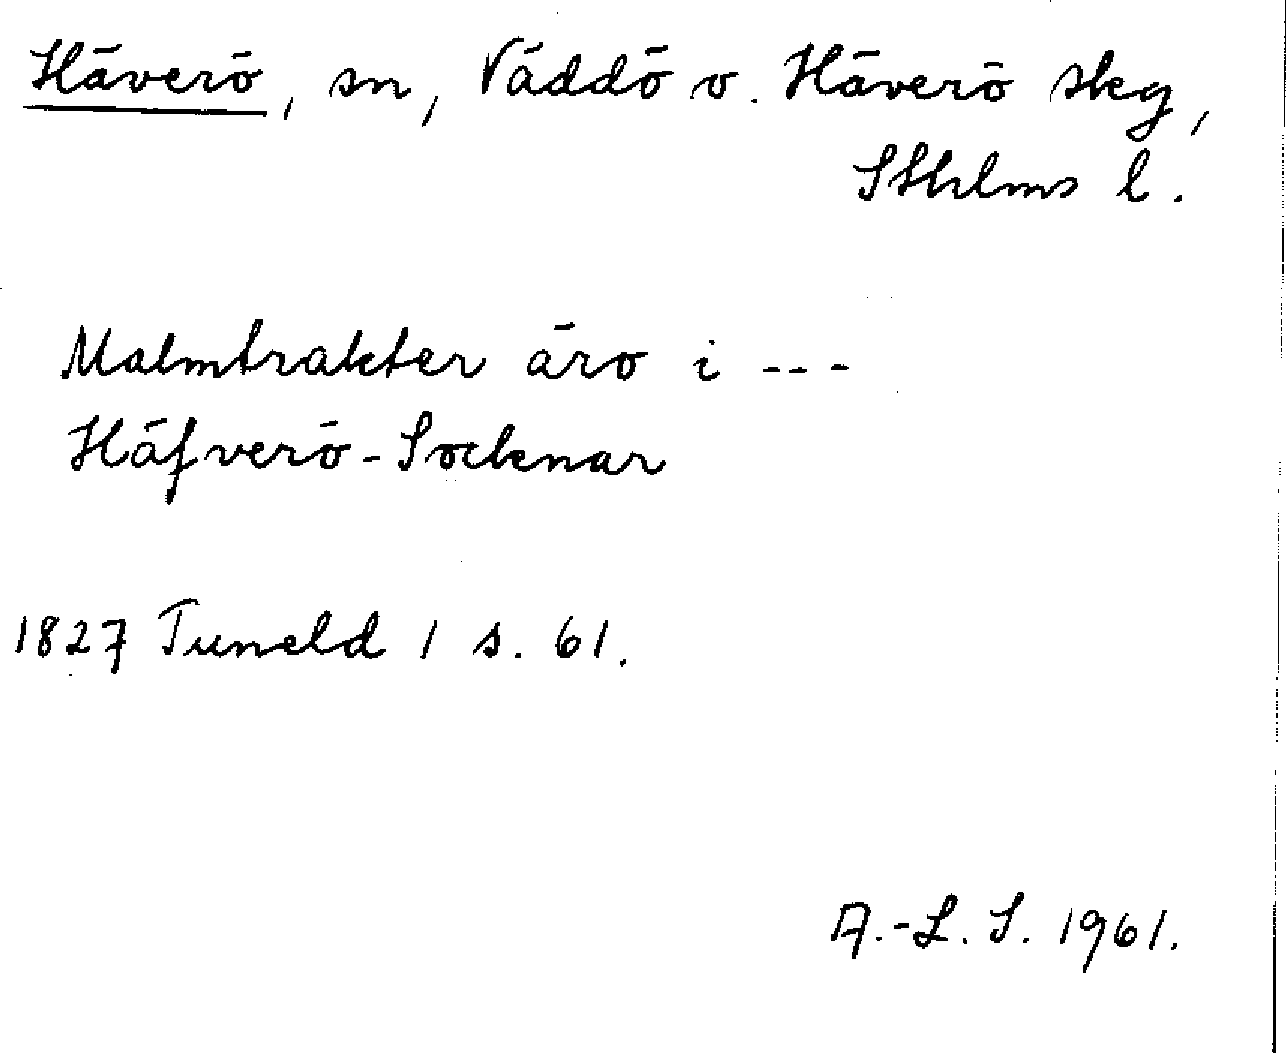 Häverö, sn, Väddö o. Häverö skg,
Sthlms l.
Malmtrakter äro i ---
Häfverö-Socknar
1827 Tuneld 1 s. 61.
A.-L. S. 1961.